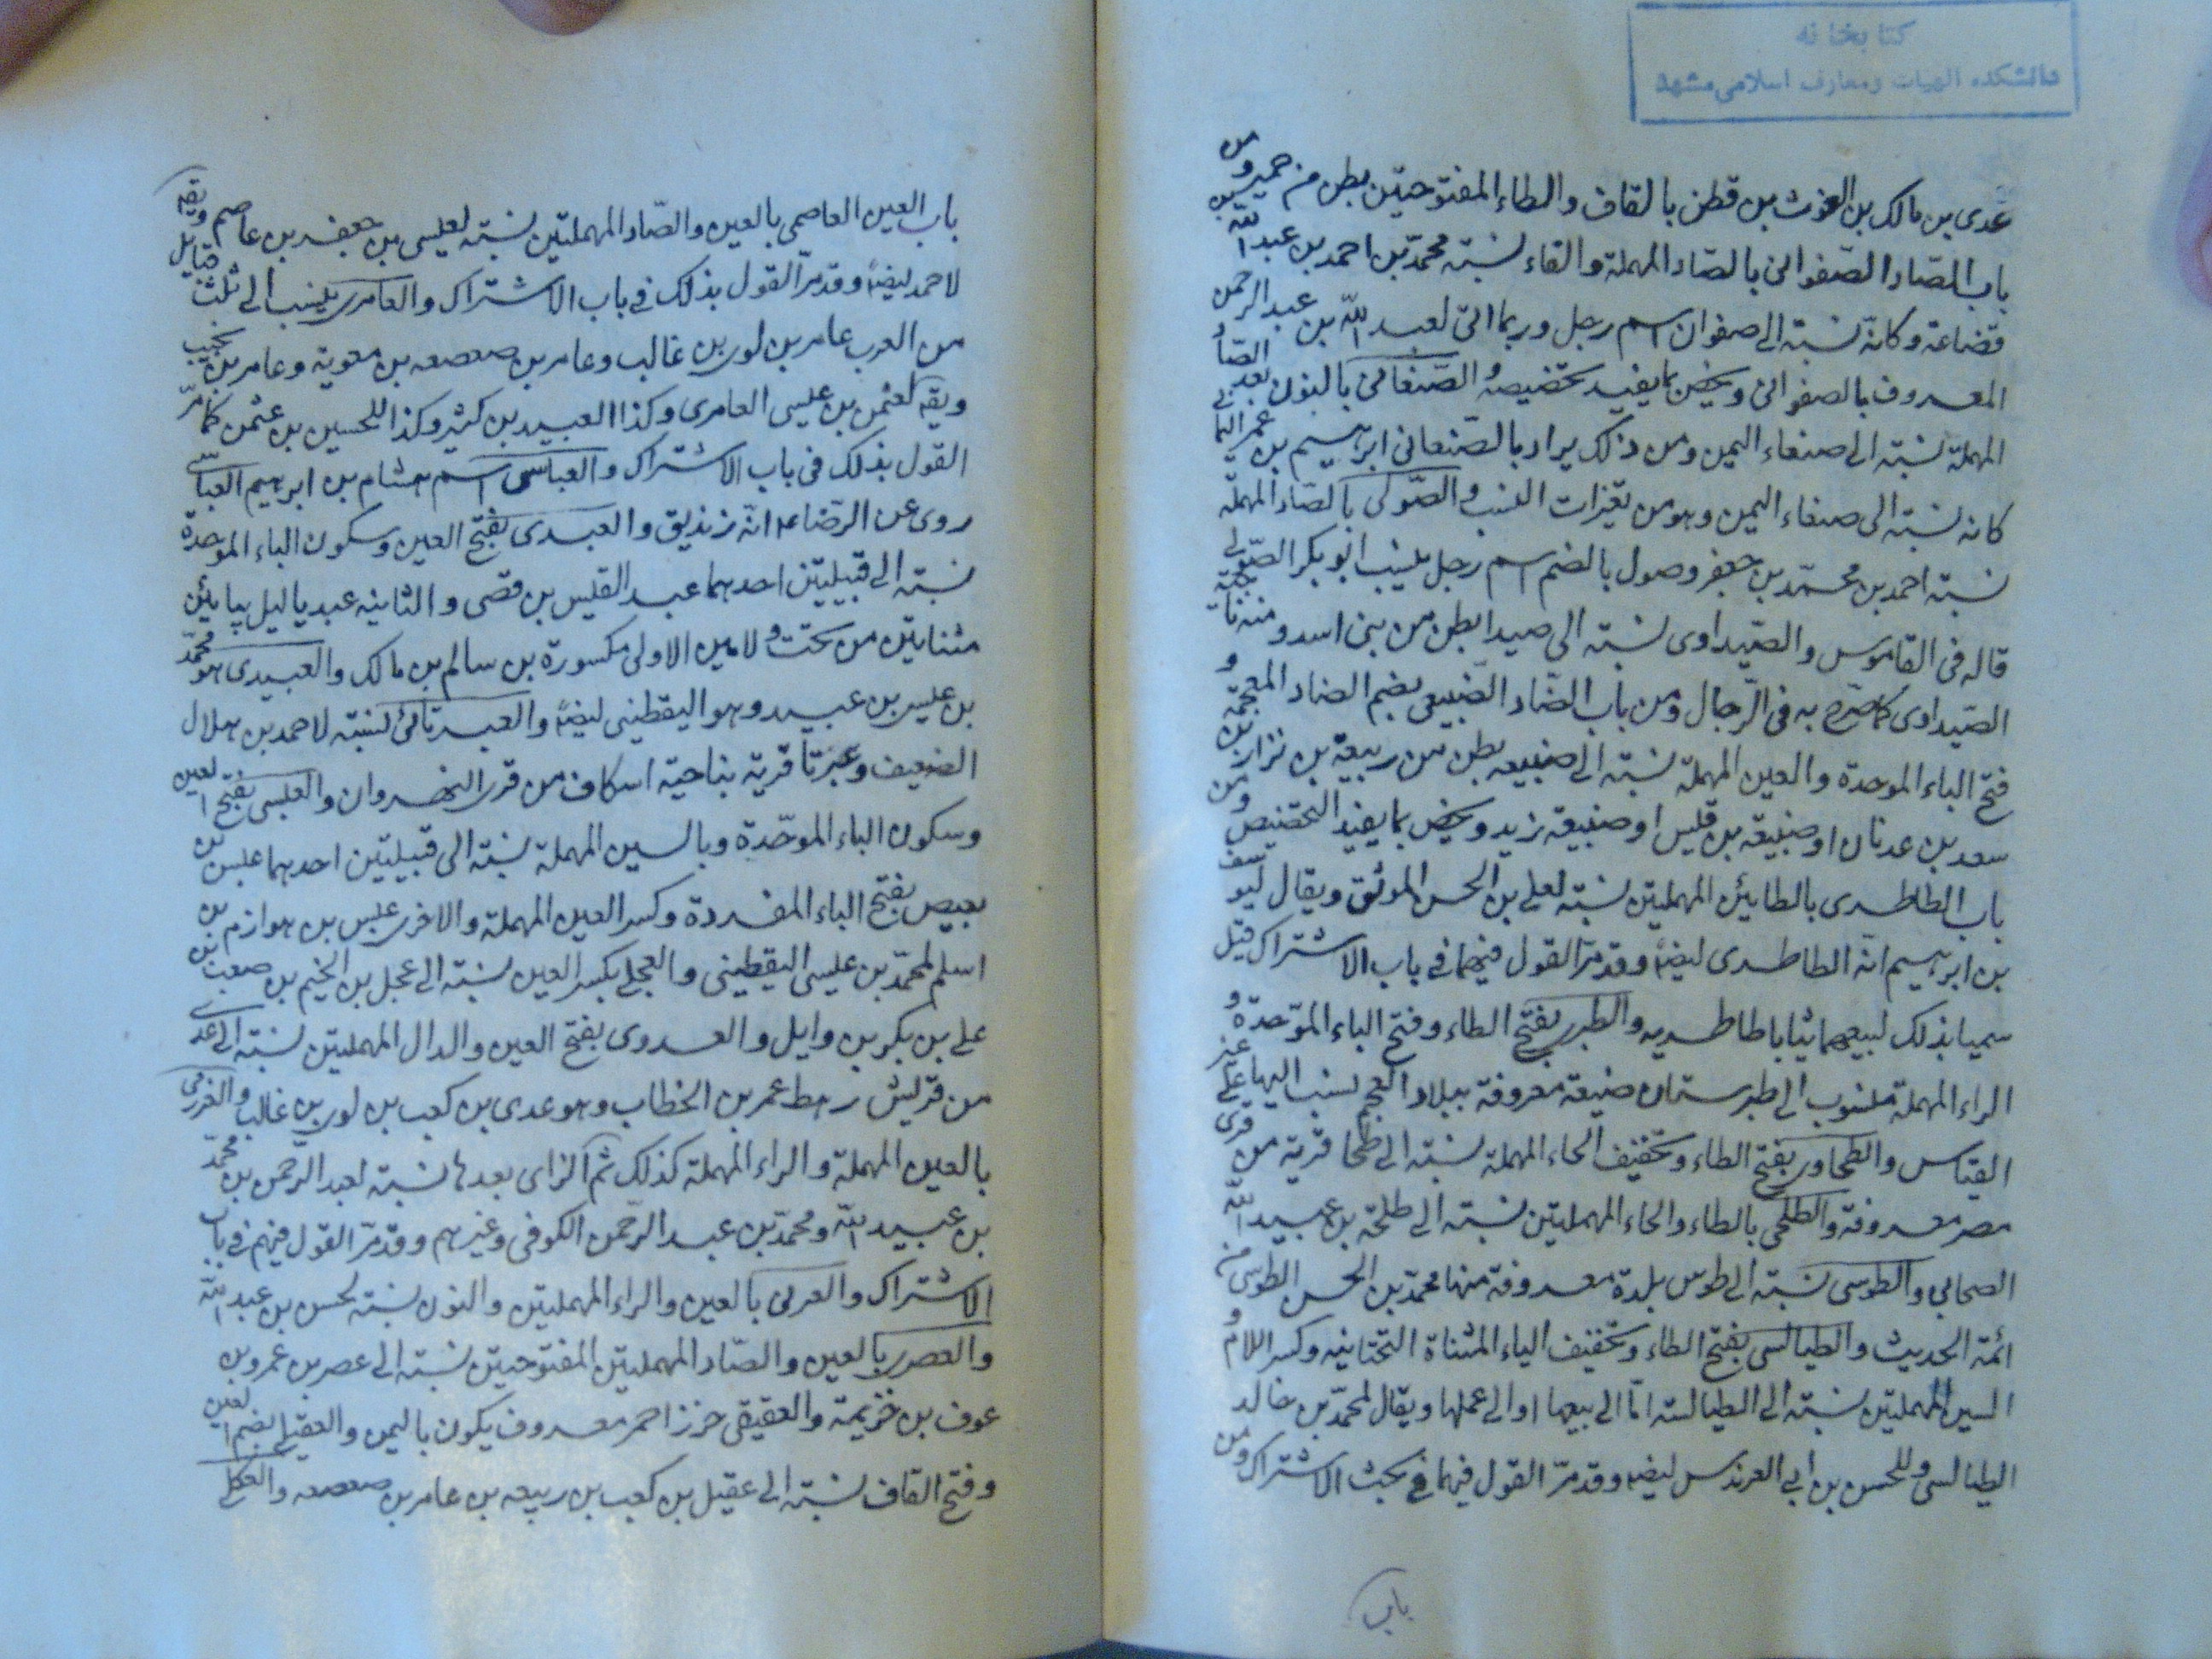 كتابخانه
دانشكده الهيات ومعارف اسلامى مشهد
عدى بن مالك بن الغوث بن قطن بالقاف والطاء المفتوحتين بطن من حمير ومن
باب الصاد الصفوانى بالصاد المهملة والفاء نسبته محمد بن احمد بن عبد الله بن
قضاعة وكانه نسبته الى صفوان اسم رجل وربما اتى لعبد الله بن عبد الرحمن
المعروف بالصفوانى ويخص بما يفيد تخصيصه والصنعانى بالنون بعد الصاد
المهملة نسبته الى صنعاء اليمن ومن ذلك يراد بالصنعانى ابراهيم بن عمر اليمانى
كانه نسبته الى صنعاء اليمن وهو من تغيرات النسب والصولى بالصاد المهملة
نسبته احمد بن محمد بن جعفر وصول بالضم اسم رجل ينسب ابو بكر الصولى
قاله فى القاموس والصيداوى نسبته الى صيدا بطن من بنى اسد ومنه
الصيداوى كما صرح به فى الرجال ومن باب الضاد الضبيعى بضم الضاد المعجمة و
فتح الباء الموحدة والعين المهملة نسبته الى ضبيعه بطن من ربيعة بن نزار بن
سعد بن عدنان او ضبيعة بن قيس او ضبيعة زيد ويخص بما يفيد التخصيص ومن
باب الطاطرى بالطايين المهملتين نسبته لعلى بن الحسن الموثق ويقال ليوسف
بن ابراهيم انه الطاطرى ايضا وقد مر القول فيهما فى باب الاشتراك قيل
سميا بذلك لبيعهما ثيابا طاطريه والطبرى بفتح الطاء وفتح الباء الموحدة و
الراء المهملة منسوب الى طبرستان ضيعة معروفة ببلاد العجم نسب اليها على غير
القياس والطحاوى بفتح الطاء وتخفيف الحاء المهملة نسبته الى طحا قرية من قرى
مصر معروفة والطلحى بالطاء والحاء المهملتين نسبته الى طلحة بن عبيد الله
الصحابى والطوسى نسبته الى طوس بلدة معروفة منها محمد بن الحسن الطوسى من
ائمة الحديث والطيالسى بفتح الطاء وتخفيف الياء المثناة التحتانيه وكسر اللام و
السين المهملتين نسبته الى الطيالسه اما الى بيعها او الى عملها ويقال لمحمد بن خالد
الطيالسى وللحسن بن ابى العرندس ايضا وقد مر القول فيهما فى بحث الاشتراك ومن
باب
باب العين العاصمى بالعين والصاد المهملتين نسبته لعيسى بن جعفر بن عاصم ويقه
لاحمد ايضا وقد مر القول بذلك فى باب الاشتراك والعامرى ينسب الى ثلث قبايل
من العرب عامر بن لوى بن غالب وعامر بن صعصعه بن معوية وعامر بن
ويقه لعثمن بن عيسى العامرى وكذا العبيد بن كثير وكذا للحسين بن عثمن كما مر
القول بذلك فى باب الاشتراك والعباسى اسم هشام بن ابرهيم العباسى
روى عن الرضا عه انه زنديق والعبدى بفتح العين وسكون الباء الموحدة
نسبته الى قبيلتين احدهما عبد القيس بن قصى والثانيه عبد ياليل بيايين
مثناتين من تحت ولامين الاولى مكسورة بن سالم بن مالك والعبيدى هو محمد
بن عيسى بن عبيد وهو اليقطينى ايضا والعبرتائى نسبته لاحمد بن هلال
الضعيف وعبرتا قرية بناحية اسكاف من قرى النهروان والعبسى بفتح العين
وسكون الباء الموحدة وبالسين المهملة نسبته الى قبيلتين احدهما عبس بن
بعيص بفتح الباء المفردة وكسر العين المهملة والاخرى عبس بن هوازم بن
اسلم لمحمد بن عيسى اليقطينى والعجلى بكسر العين نسبته الى عجل بن الخيم بن صعب بن
على بن بكر بن وايل والعدوى بفتح العين والدال المهملتين نسبته الى عدى
من قريش رهط عمر بن الخطاب وهو عدى بن كعب بن لوى بن غالب والعرزمى
بالعين المهملة والراء المهملة كذلك ثم الزاى بعدها نسبته لعبد الرحمن بن محمد
بن عبيد الله ومحمد بن عبد الرحمن الكوفى وغيرهم وقد مر القول فيهم فى باب
الاشتراك والعرنى بالعين والراء المهملتين والنون نسبته لحسن بن عبد الله
والعصرى بالعين والصاد المهملتين المفتوحتين نسبته الى عصر بن عمرو بن
عوف بن خزيمة والعقيقى خرز احمر معروف يكون باليمن والعقيلى بضم العين
وفتح القاف نسبته الى عقيل بن كعب بن ربيعه بن عامر بن صعصعه والعكلى